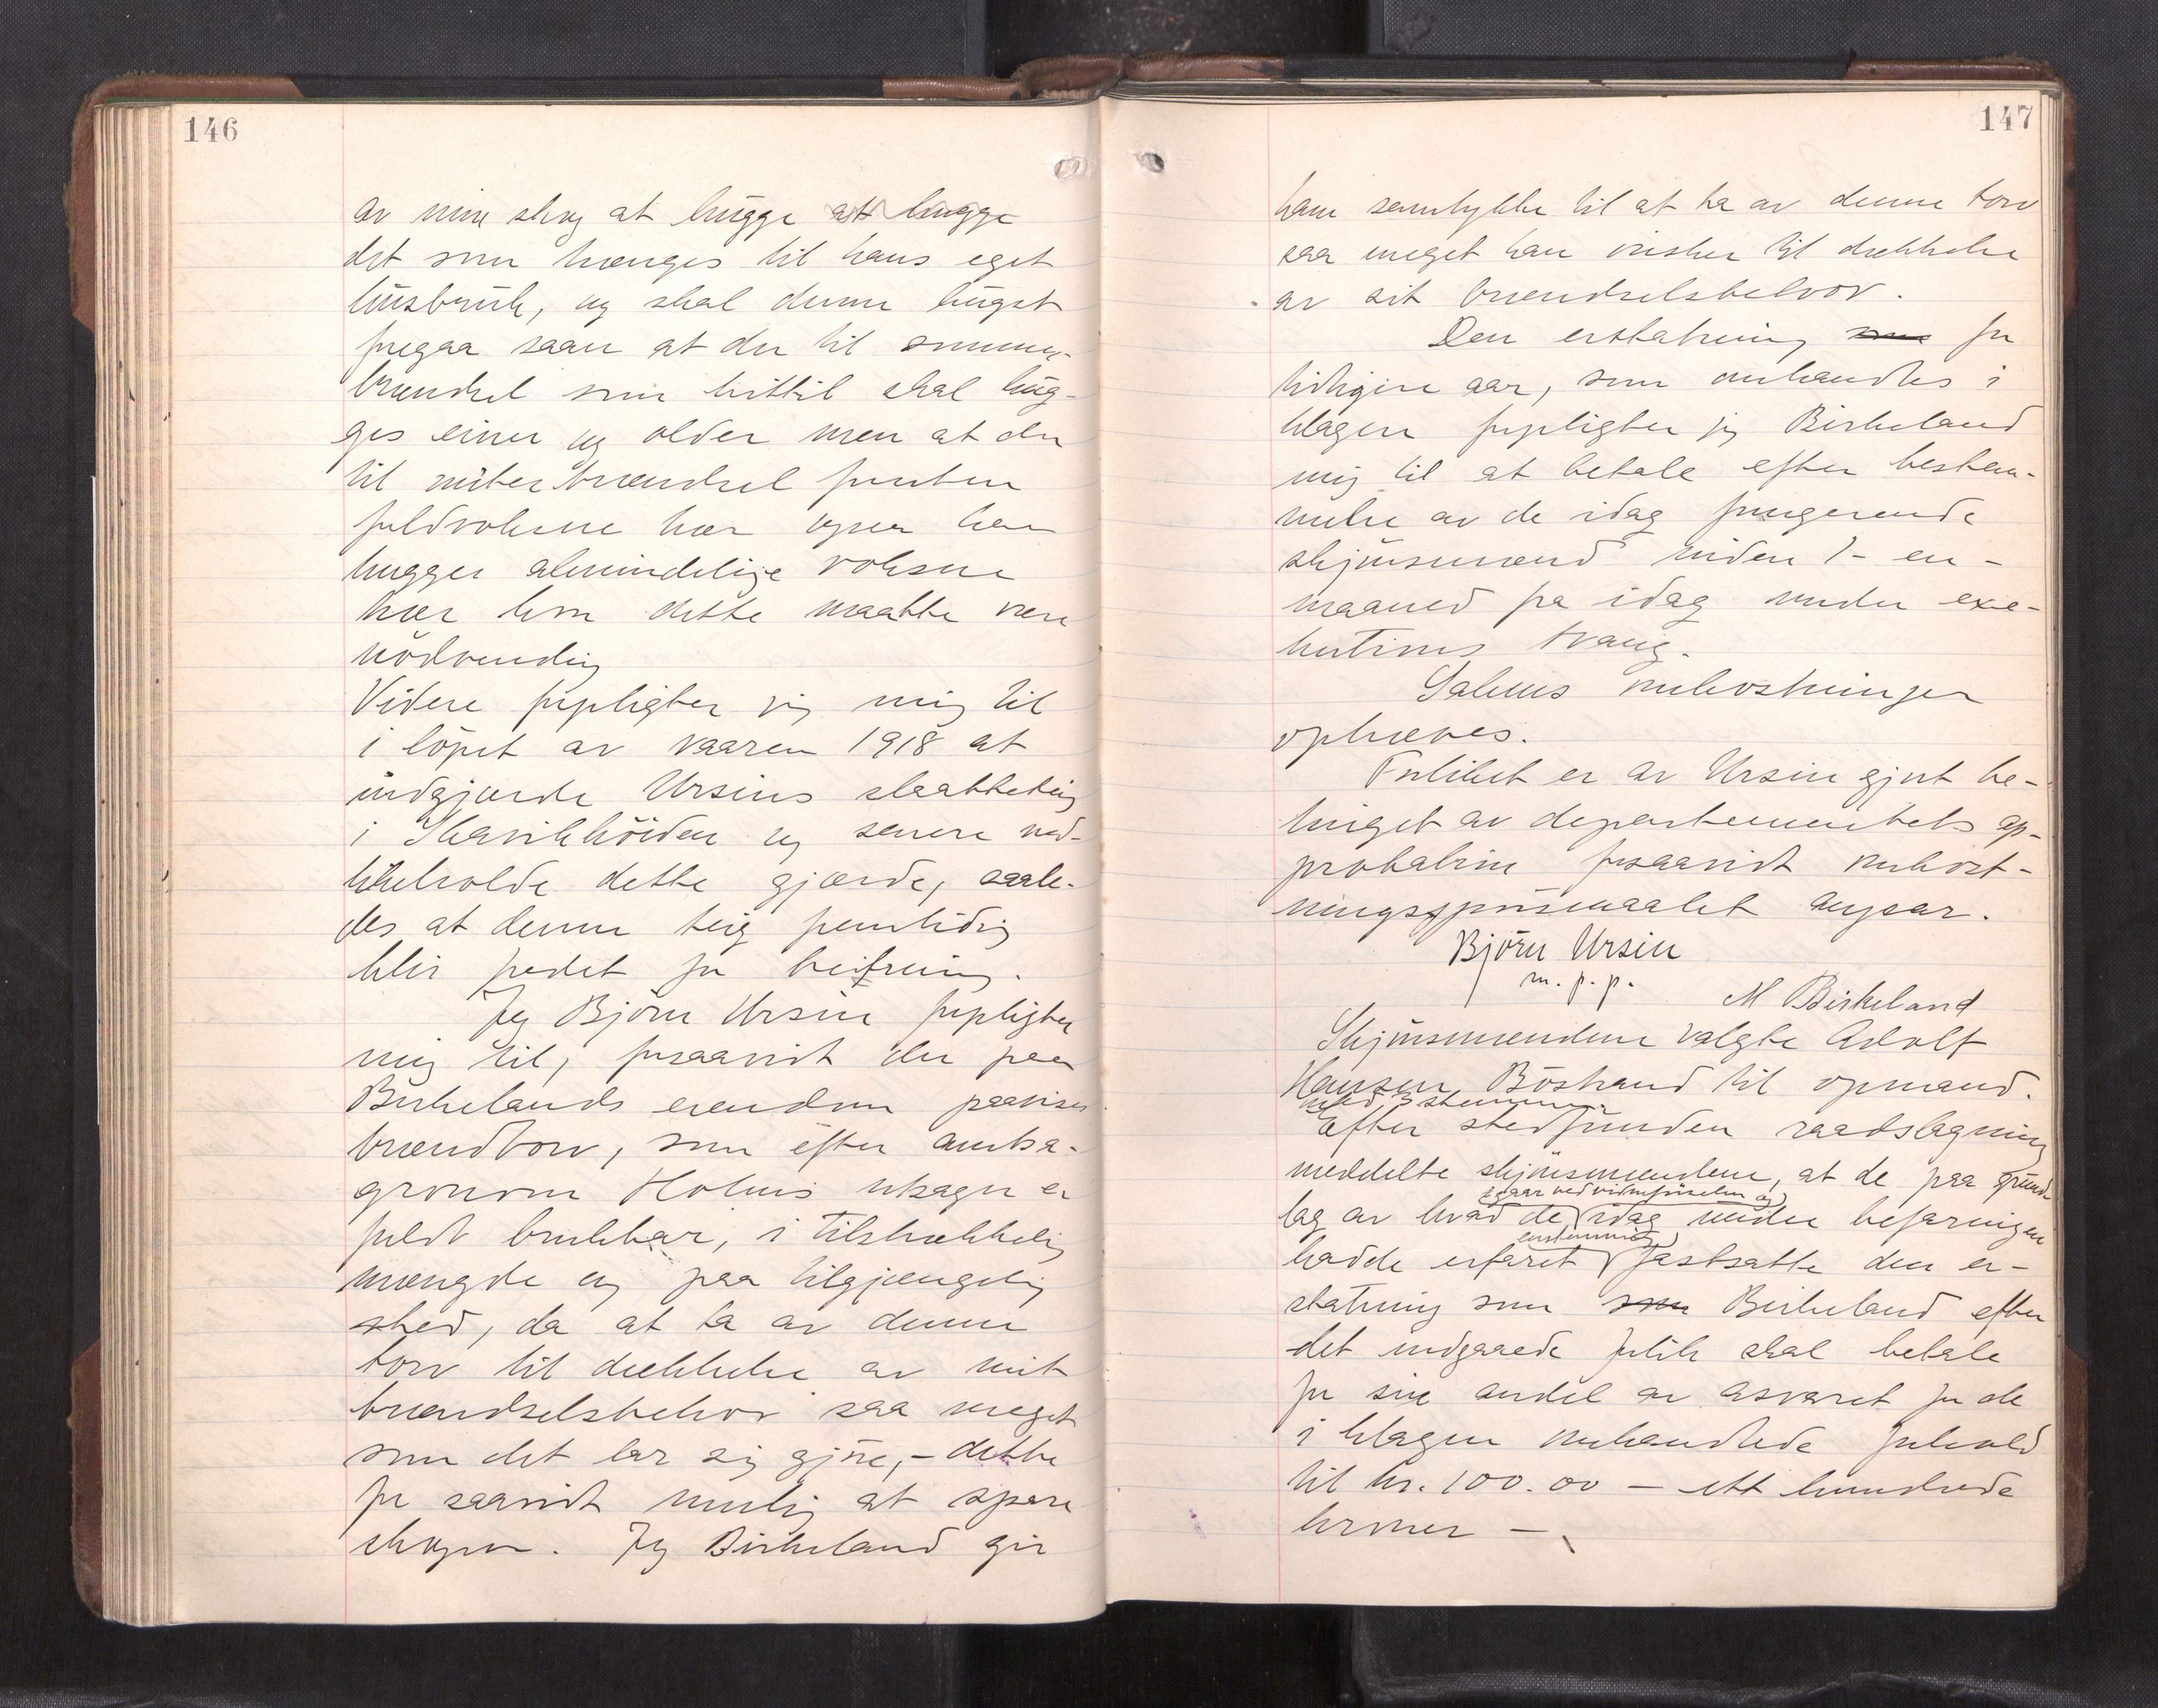 146
av min skog at hugge at hugge
det som trænges til hans eget
husbruk, og skal denne hugst
foregaa saan at der til sommer-
brændsel som hittil skal hug-
ges einer og older men at der
til vinterbrændsel foruten
fuldvoksne trær ogsaa kan
hugges almindelige voksne
trær hvor dette maatte være
nödvendig
Videre forpligter jeg mig til
i löpet av vaaren 1918 at
indgjærde Ursins slaatteteig
i Skarvikhöiden og senere ved-
likeholde dette gjærde, saale-
des at denne teig fremtidig
blir fredet for beitning.
Jeg Björn Ursin forpligter
mig til, forsaavidt der paa
Birkelands eiendom paavises
brændtorv, som efter amtsa-
gronom Holms utsagn er
fuldt brukbar, i tilstrækkelig
mængde og paa tilgjængelig
sted, da at ta av denne
torv til dækkelse av mit
brændselsbehov saa meget
som det lar sig gjöre, - dette
for saavidt mulig at spare
skogen. Jeg Birkeland gir
147
ham samtykke til at ta av denne torv
saa meget han önsker til dækkelse
av sit brændselsbehov.
Den erstatning som for
tidligere aar, som omhandles i
klagen forpligter jeg Birkeland
mig til at betale efter bestem-
melse av de idag fungerende
skjönsmænd inden 1 - en -
maaned fra idag under exe-
kutions tvang.
Sakens omkostninger
ophæves.
Forliket er av Ursin gjort be-
tinget av departementets ap-
probation forsaavidt omkost-
ningsspörsmaalet angaar.
Björn Ursin
m. p. p.
M Birkeland
Skjönsmændene valgte Adolf
Hansen Böstrand til opmand.
med 3 stemmer
Efter stedfunden raadslagning
meddelte skjönsmændene, at de paa grund-
igaar ved vidneförselen og
lag av hvad de idag under befaringen
enstemmig
hadde erfaret fastsatte den er-
statning som som Birkeland efter
det indgaaede forlik skal betale
for sin andel av ansvaret for de
i klagen omhandlede forhold
til kr. 100.00 - ett hundrede
kroner -